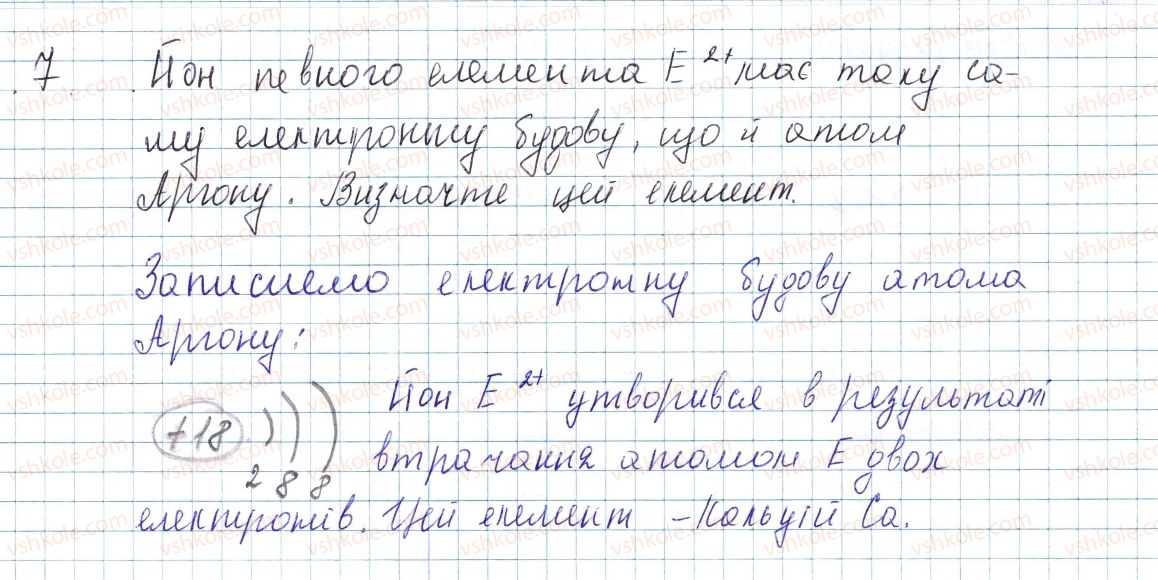 7. Йон певного елемента E²⁺ має таку са-
му електронну будову, що й атом
Аргону. Визначте цей елемент.
Запишемо електронну будову атома
Аргону:
+18 ) ) ) Йон E²⁺ утворився в результаті
2 8 8 втрачання атомом E двох
електронів. Цей елемент – Кальцій Ca.